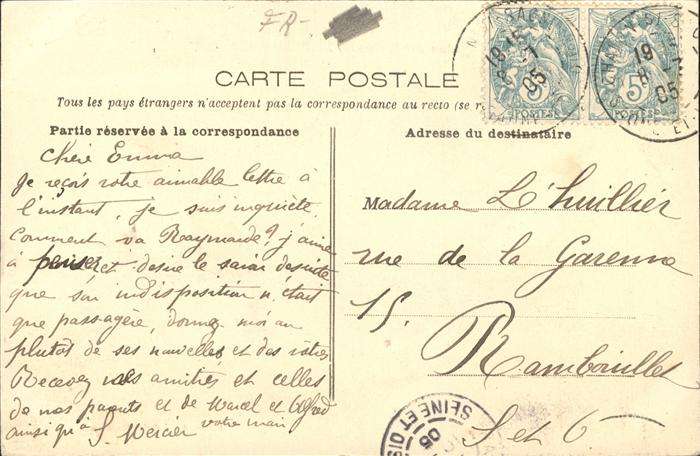 FR-
CARTE POSTALE
Tous les pays étrangers n'acceptent pas la correspondance au recto (se r
Partie réservée à la correspondance
Adresse du destinataire
5c
POSTES
5c
POSTES
19
8
05
Chère Emma
Je reçois votre aimable lettre à
l'instant, je suis inquiète
Comment va Raymonde? j'aime
à penser et desire le savoir de suite
que son indisposition n'était
que passagère, donnez moi au
plutôt de ses nouvelles et des vôtres
Recevez mes amitiés et celles
de nos parents et de Marcel et Alfred
ainsi qu'à votre mari
S. Mercier
Madame L'huillier
rue de la Garenne
15.
Rambouillet
S et O
SEINE ET OIS
05